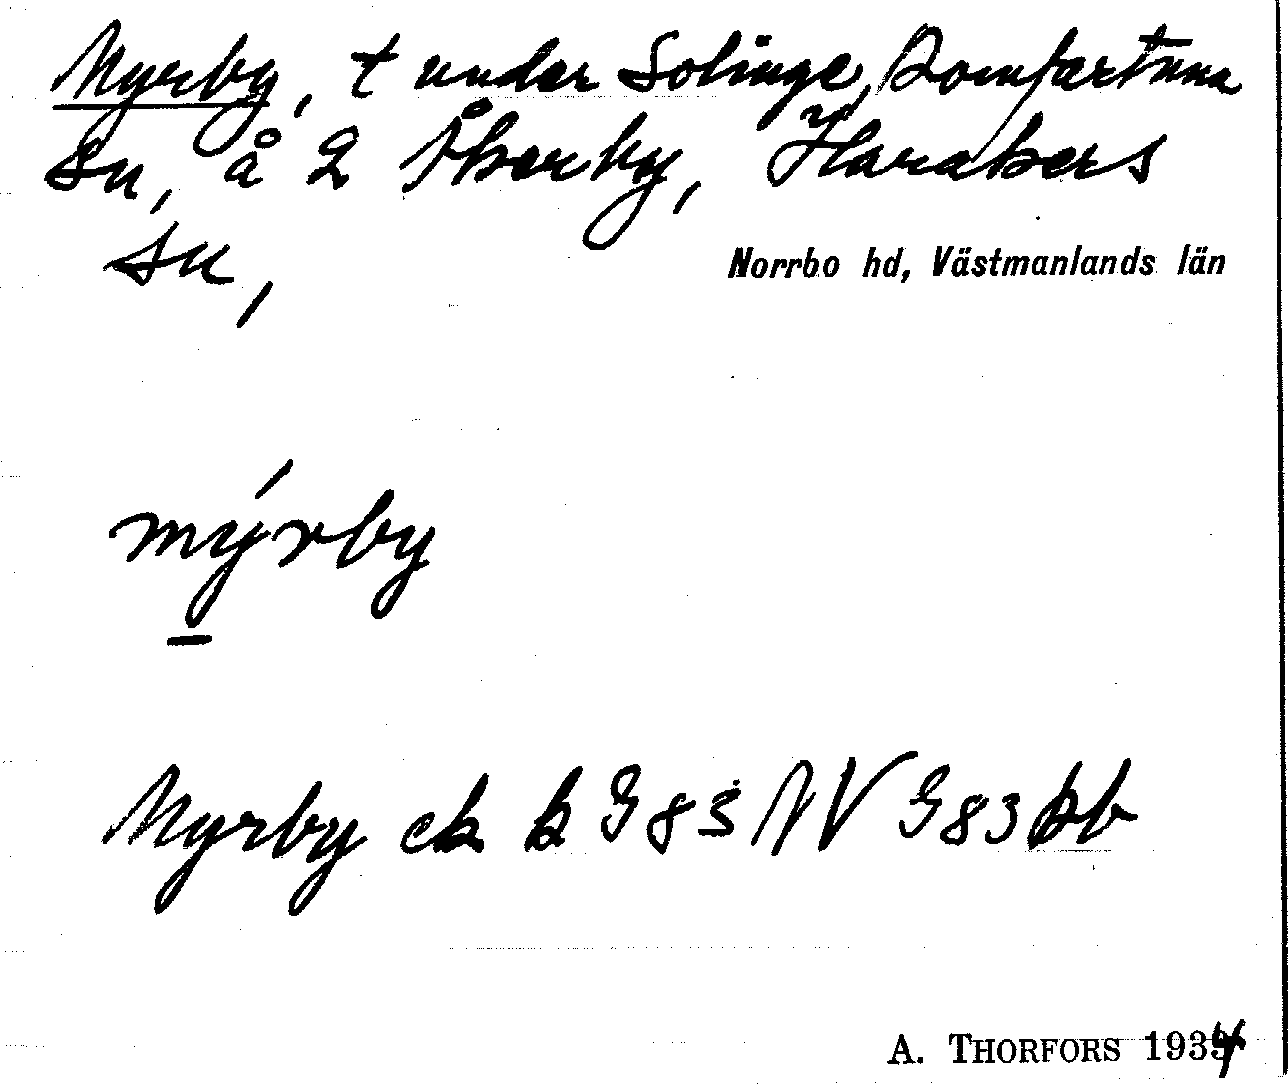 Myrby, t under Solinge, Romfartuna
sn, å 2 Åkerby, Haraker s
sn,
Norrbo hd, Västmanlands län
mýrby
Myrby ek k G 83 NV G 83 kb
A. THORFORS 1934